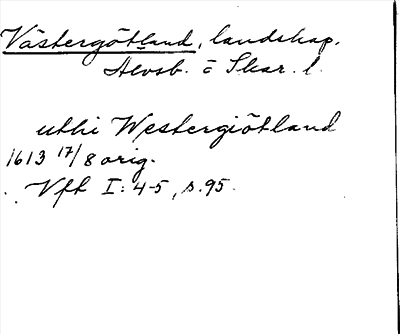 Västergötland, landskap.
Älvsb. o Skar. l.
uthi Westergiötland
1613 17/8 orig.
Vft I: 4-5, s. 95.